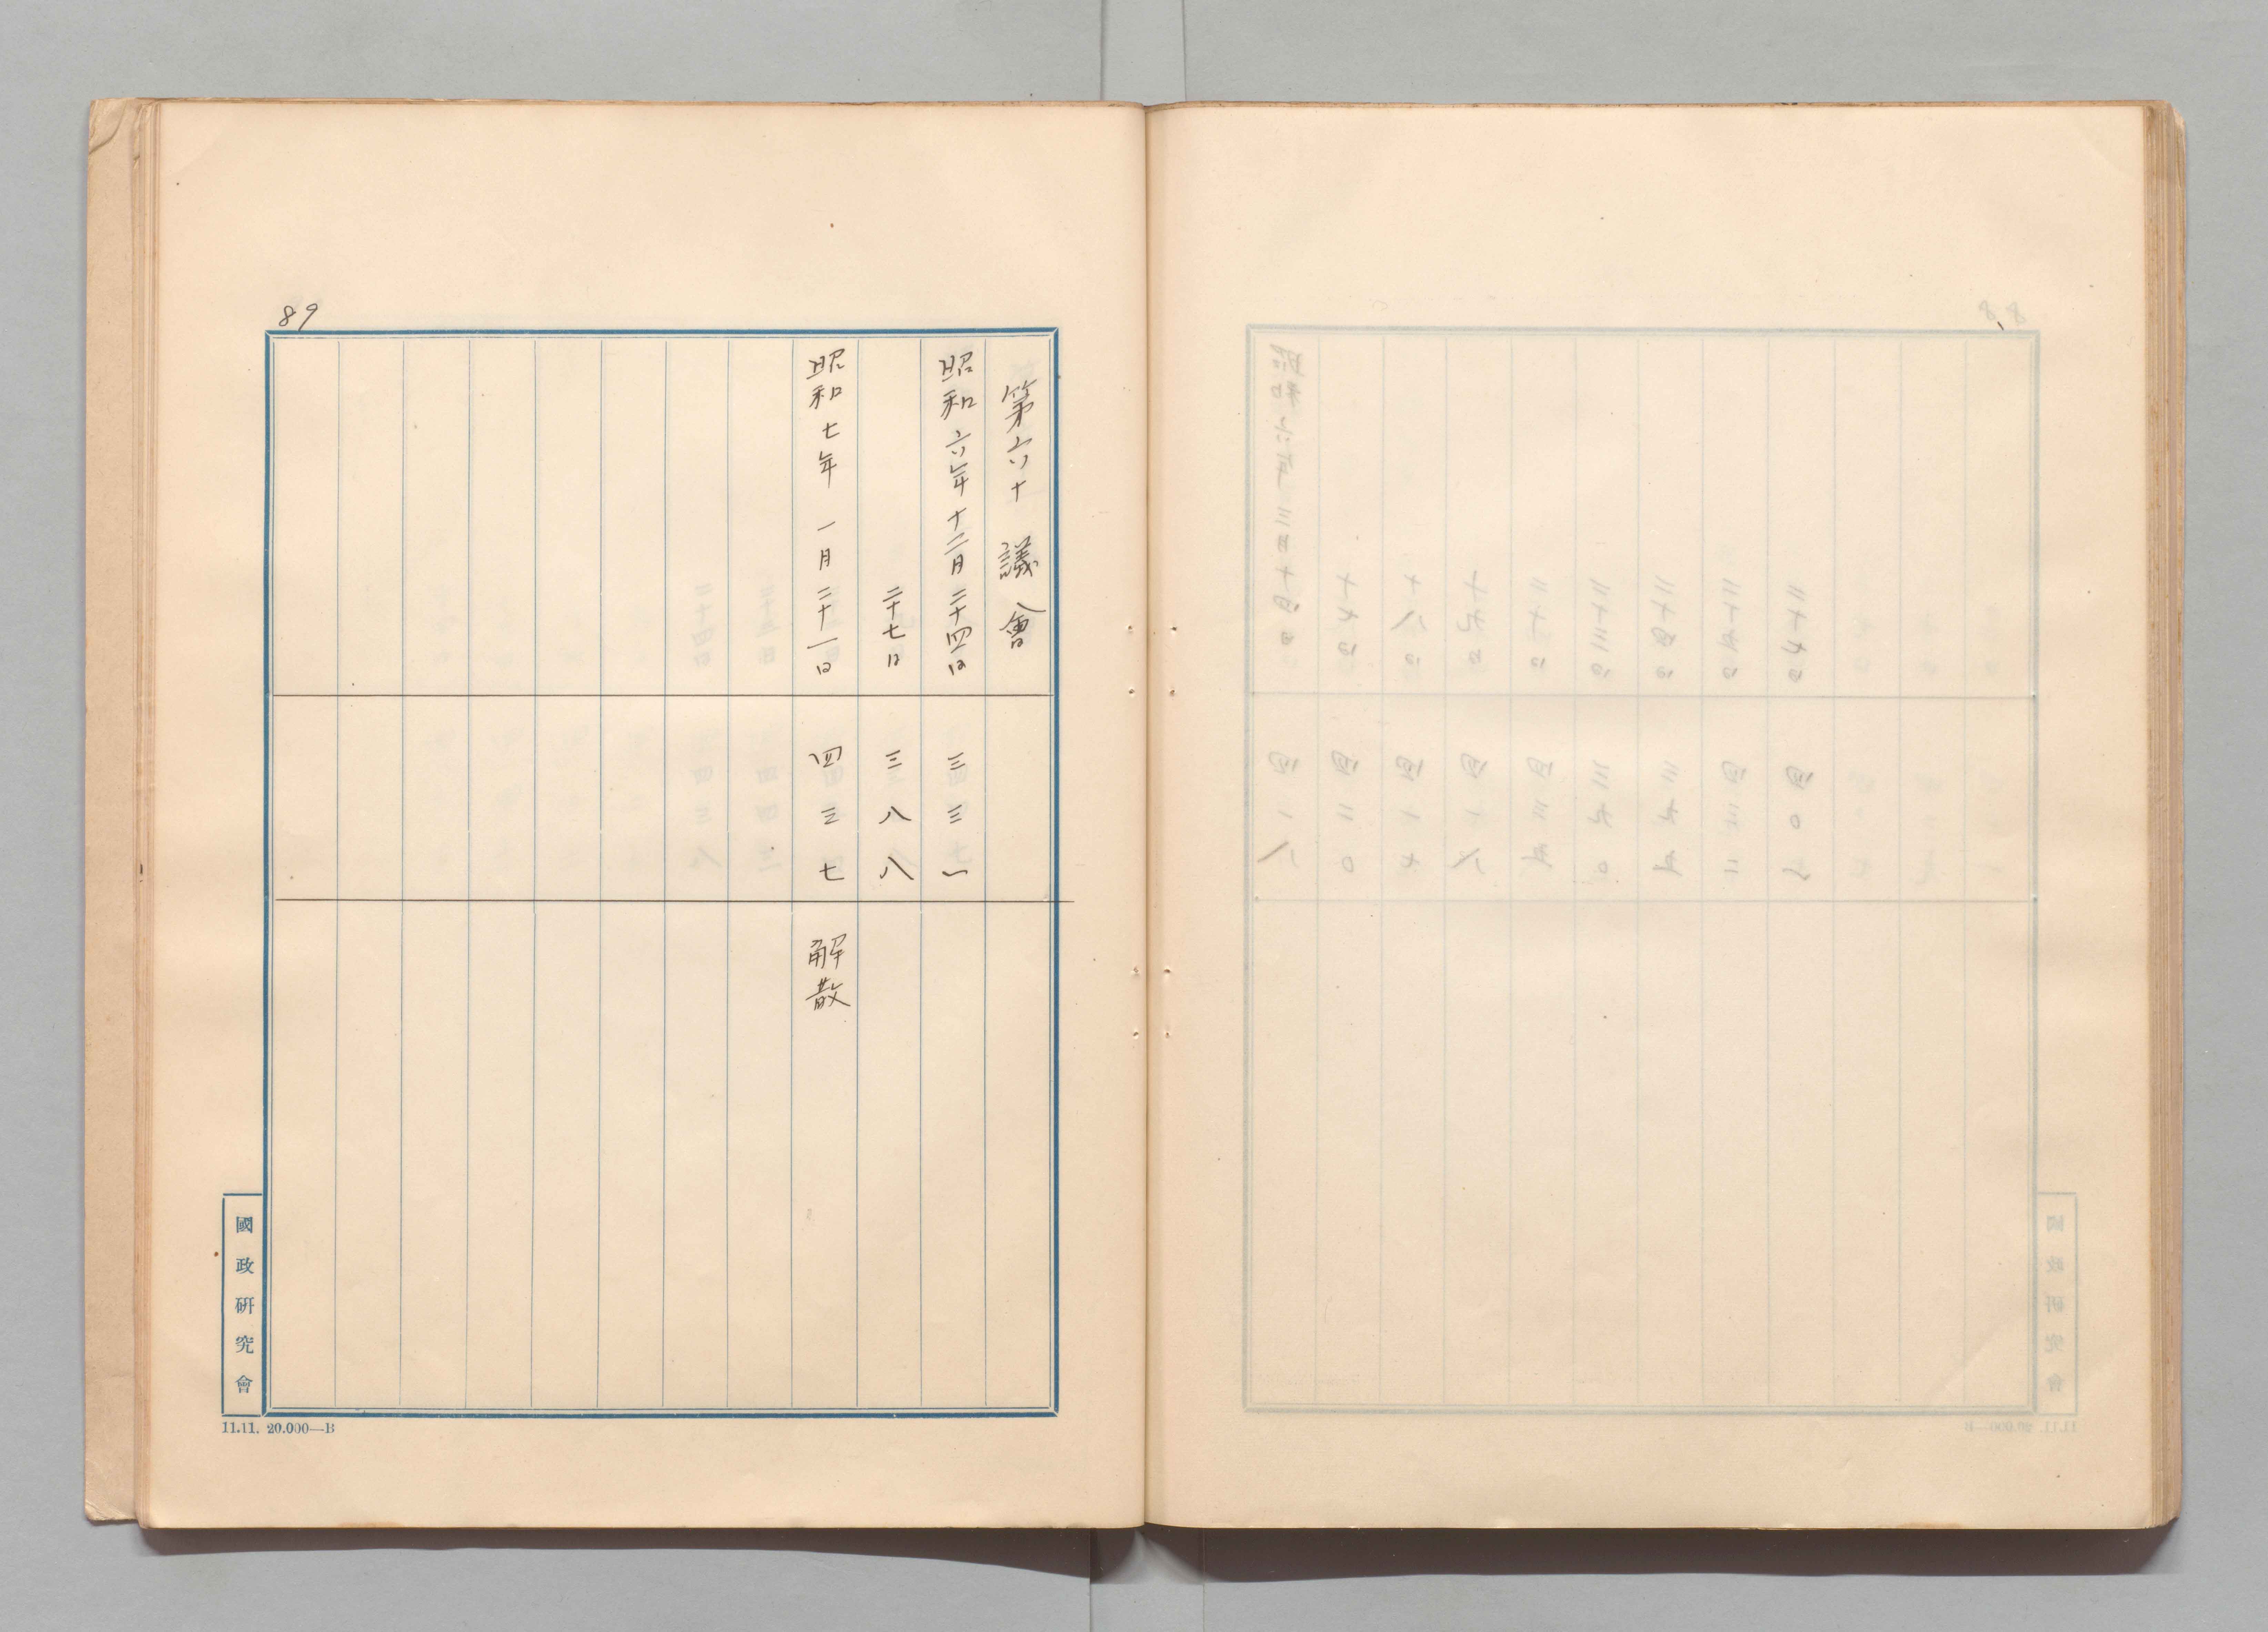 89
第六十議會
昭和六年十二月二十四日 三三一
二十七日 三八八
昭和七年一月二十一日 四三七 解散
國政研究會
11.11. 20.000—B